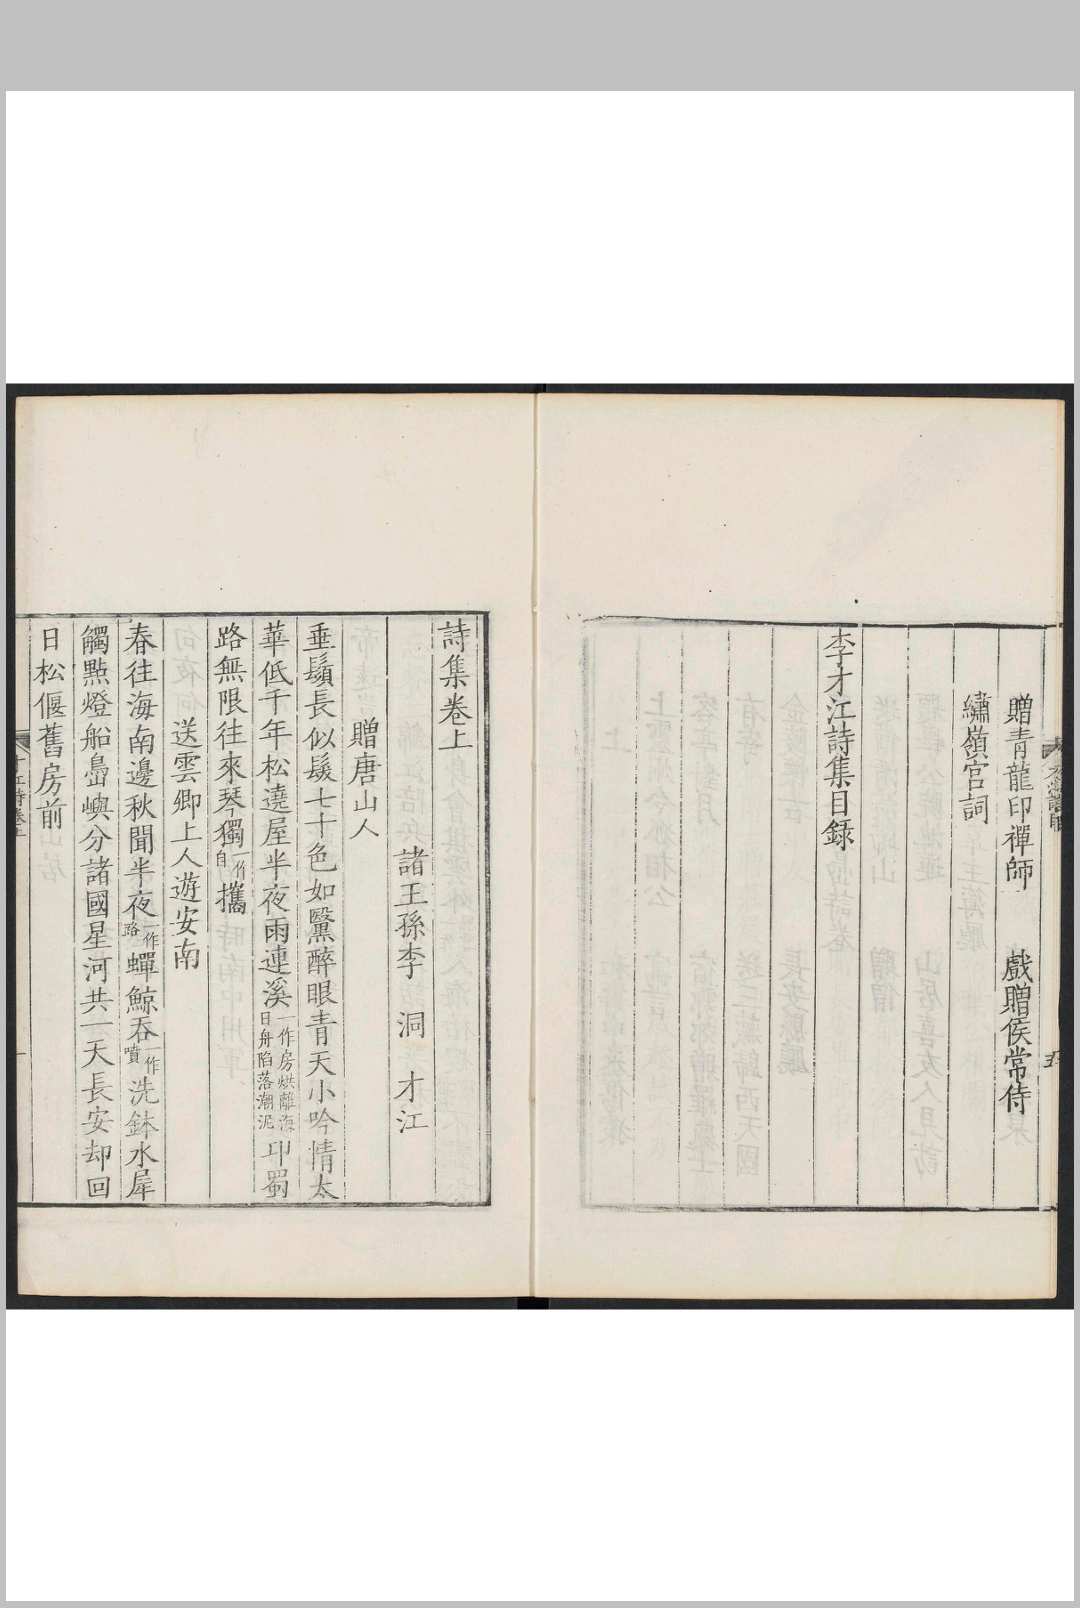 贈青龍印禪師　戲贈侯常侍
繡嶺宮詞
李才江詩集目錄
五
詩集卷上
諸王孫李　洞　才江
贈唐山人
垂鬚長似髮七十色如黳醉眼青天小吟情太
華低千年松遶屋半夜雨連溪一作房烘離海日舟陷落潮泥邛蜀
路無限往來琴獨一作自攜
送雲卿上人遊安南
春往海南邊秋聞半夜一作路蟬鯨吞一作噴洗鉢水犀
觸㸃燈船島嶼分諸國星河共一天長安却回
日松偃舊房前
一